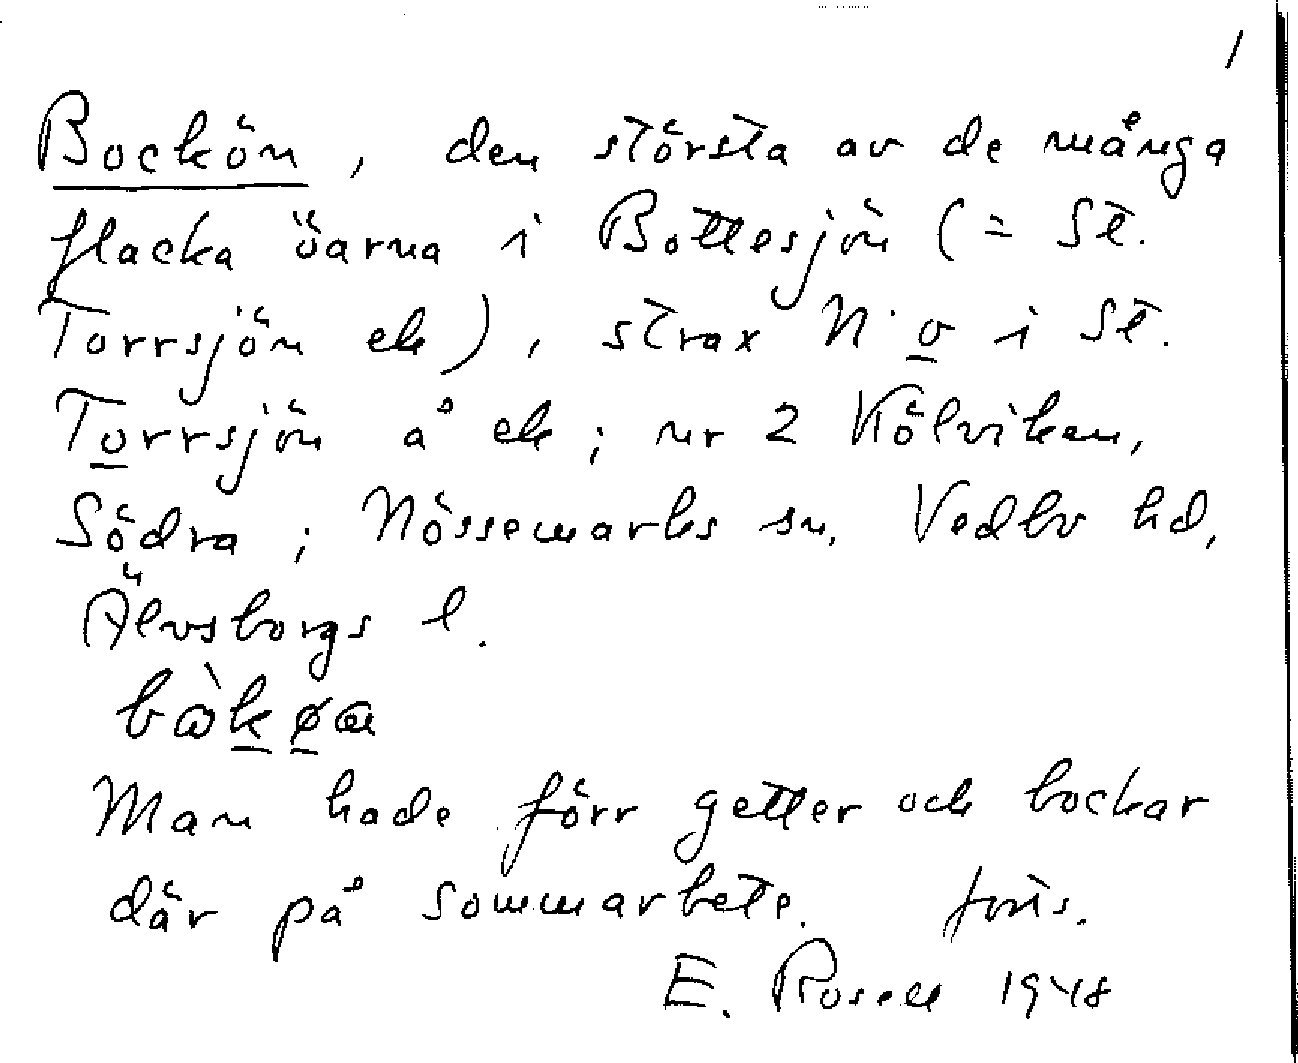 1
Bockön, den största av de många
flacka öarna i Bottesjön (= St.
Torrsjön ek), strax N. o i St.
Torrsjön å ek; nr 2 Kölviken,
Södra; Nössemarks sn, Vedbo hd,
Älvsborgs l.
Man hade förr getter och bockar
där på sommarbete. forts.
E. Rosell 1948